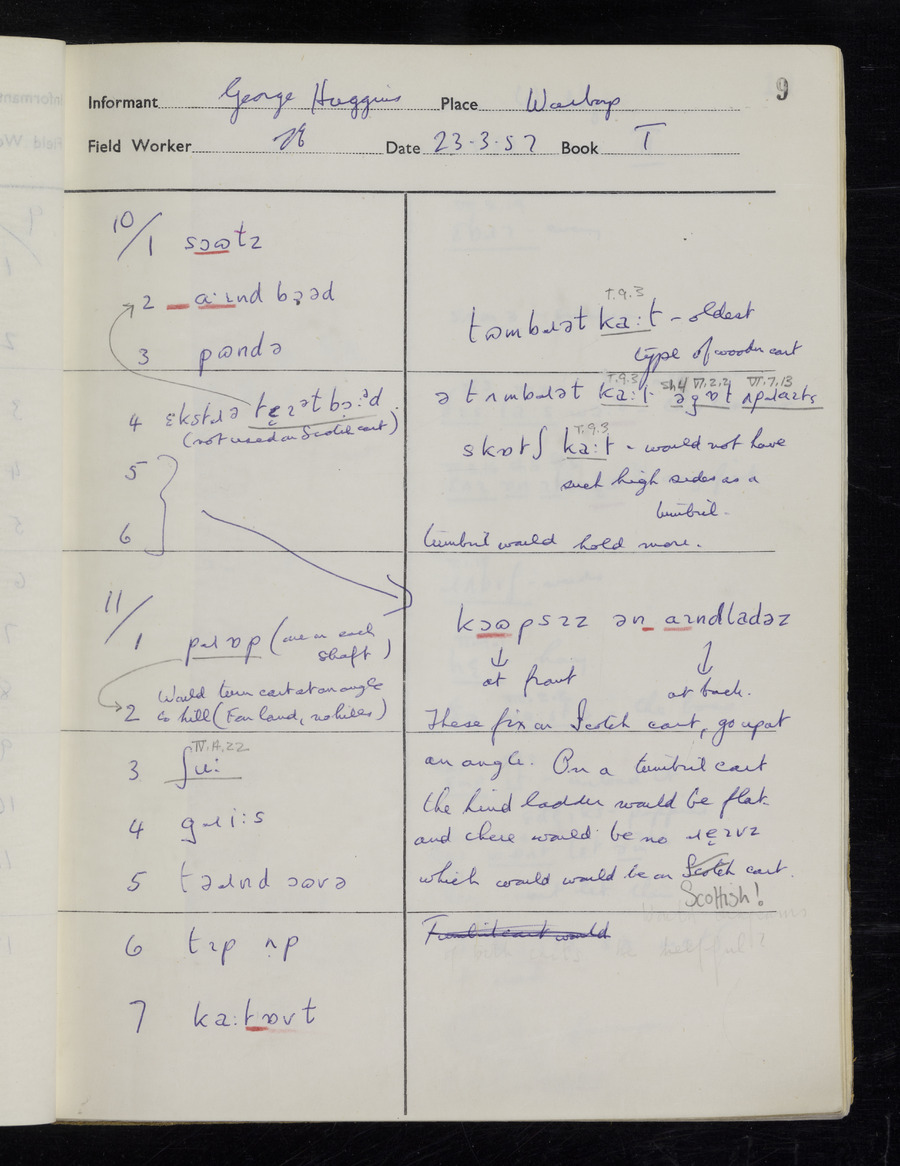 9
Informant George Huggins Place Warboys
Field Worker Date 23-3-57 Book T
10/1 sɔɷtz
2 a:ɪnd bɔəd
3 pɷndə
4 ɛkstɹə tɛɪət bɔ:əd
(not used on Scotch cart)
5
6
11/
1 pɹɒp (one on each
shaft)
2 Would turn cart at an angle
to hill (Fen land, no hills)
IV.A.22
3 ʃu:
4 gɹi:s
5 təɹnd ɔəvə
6 tɪp ʌp
7 ka:tɹɒvt
T.9.3
tɷmbɹət ka:t - oldest
type of wooden cart
T.9.3 sh4 VI.2.2 VI.7.13
ə tʌmbɹət ka:t əgɒt ʌpɹaɪts
T.9.3
skɒtʃ ka:t - would not have
such high sides as a
tumbril.
tumbril would hold more.
kɔɷpsɪz ən aɪndladəz
↓ ↓
at front at back.
These fix on Scotch cart, go up at
an angle. On a tumbril cart
the hind ladder would be flat
and there would be no ɹɛɪvz
which would would be on Scotch cart.
Scottish!
Tumbril cart would